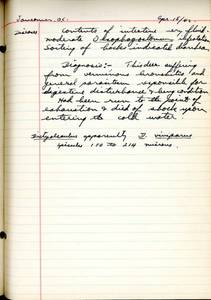 Vancouver, B.C. Apr. 15/
Contents of intestine very fluid-
moderate Oesophagostomum infestation
Soiling of hocks indicated diarrhea.
Diagnosis:- This deer suffering
from verminous bronchitis and
general parasitism responsible for
digestive disturbance & being condition
Had been run to the point of
exhaustion & died of shock upon
entering the cold water.
Dictyocaulus apparently D. viviparus
spicules 190 to 214 microns.